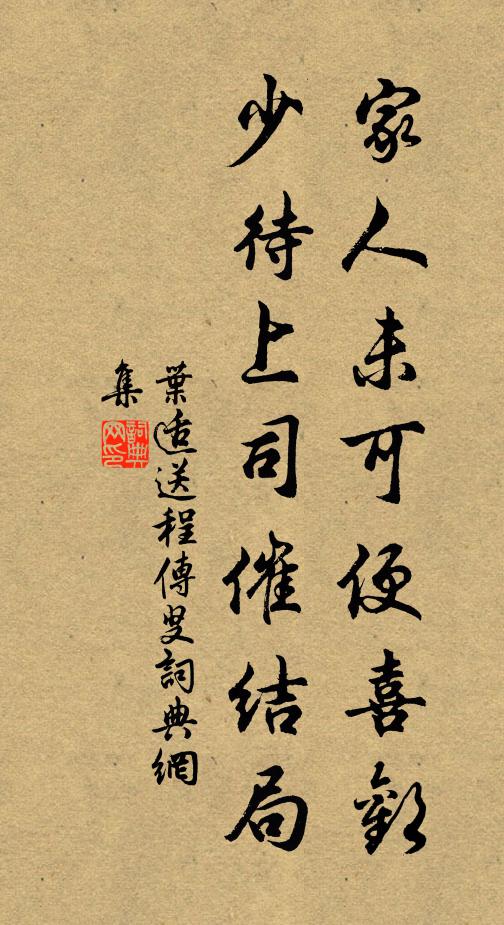 家人未可便喜歡
少待上司催結局
葉適送程傳叟詞典網
集
詞典网印